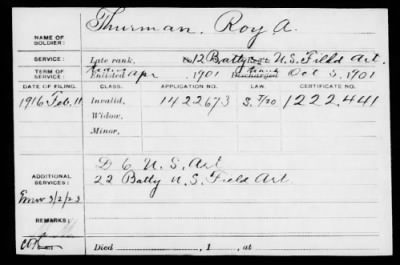 NAME OF SOLDIER: Thurman, Roy A.
SERVICE: Late rank, 12 Batty U.S. Field Art.
TERM OF SERVICE: Enlisted Apr, 1901 Discharged Oct 5, 1901
DATE OF FILING. CLASS. APPLICATION NO. LAW. CERTIFICATE NO.
1916 Feb. 11 Invalid, 1422673 1222441
Widow,
Minor,
ADDITIONAL SERVICES: D 6 U.S. Art
22 Batty U.S. Field Art.
3/2/23
REMARKS:
Died , 1 , at